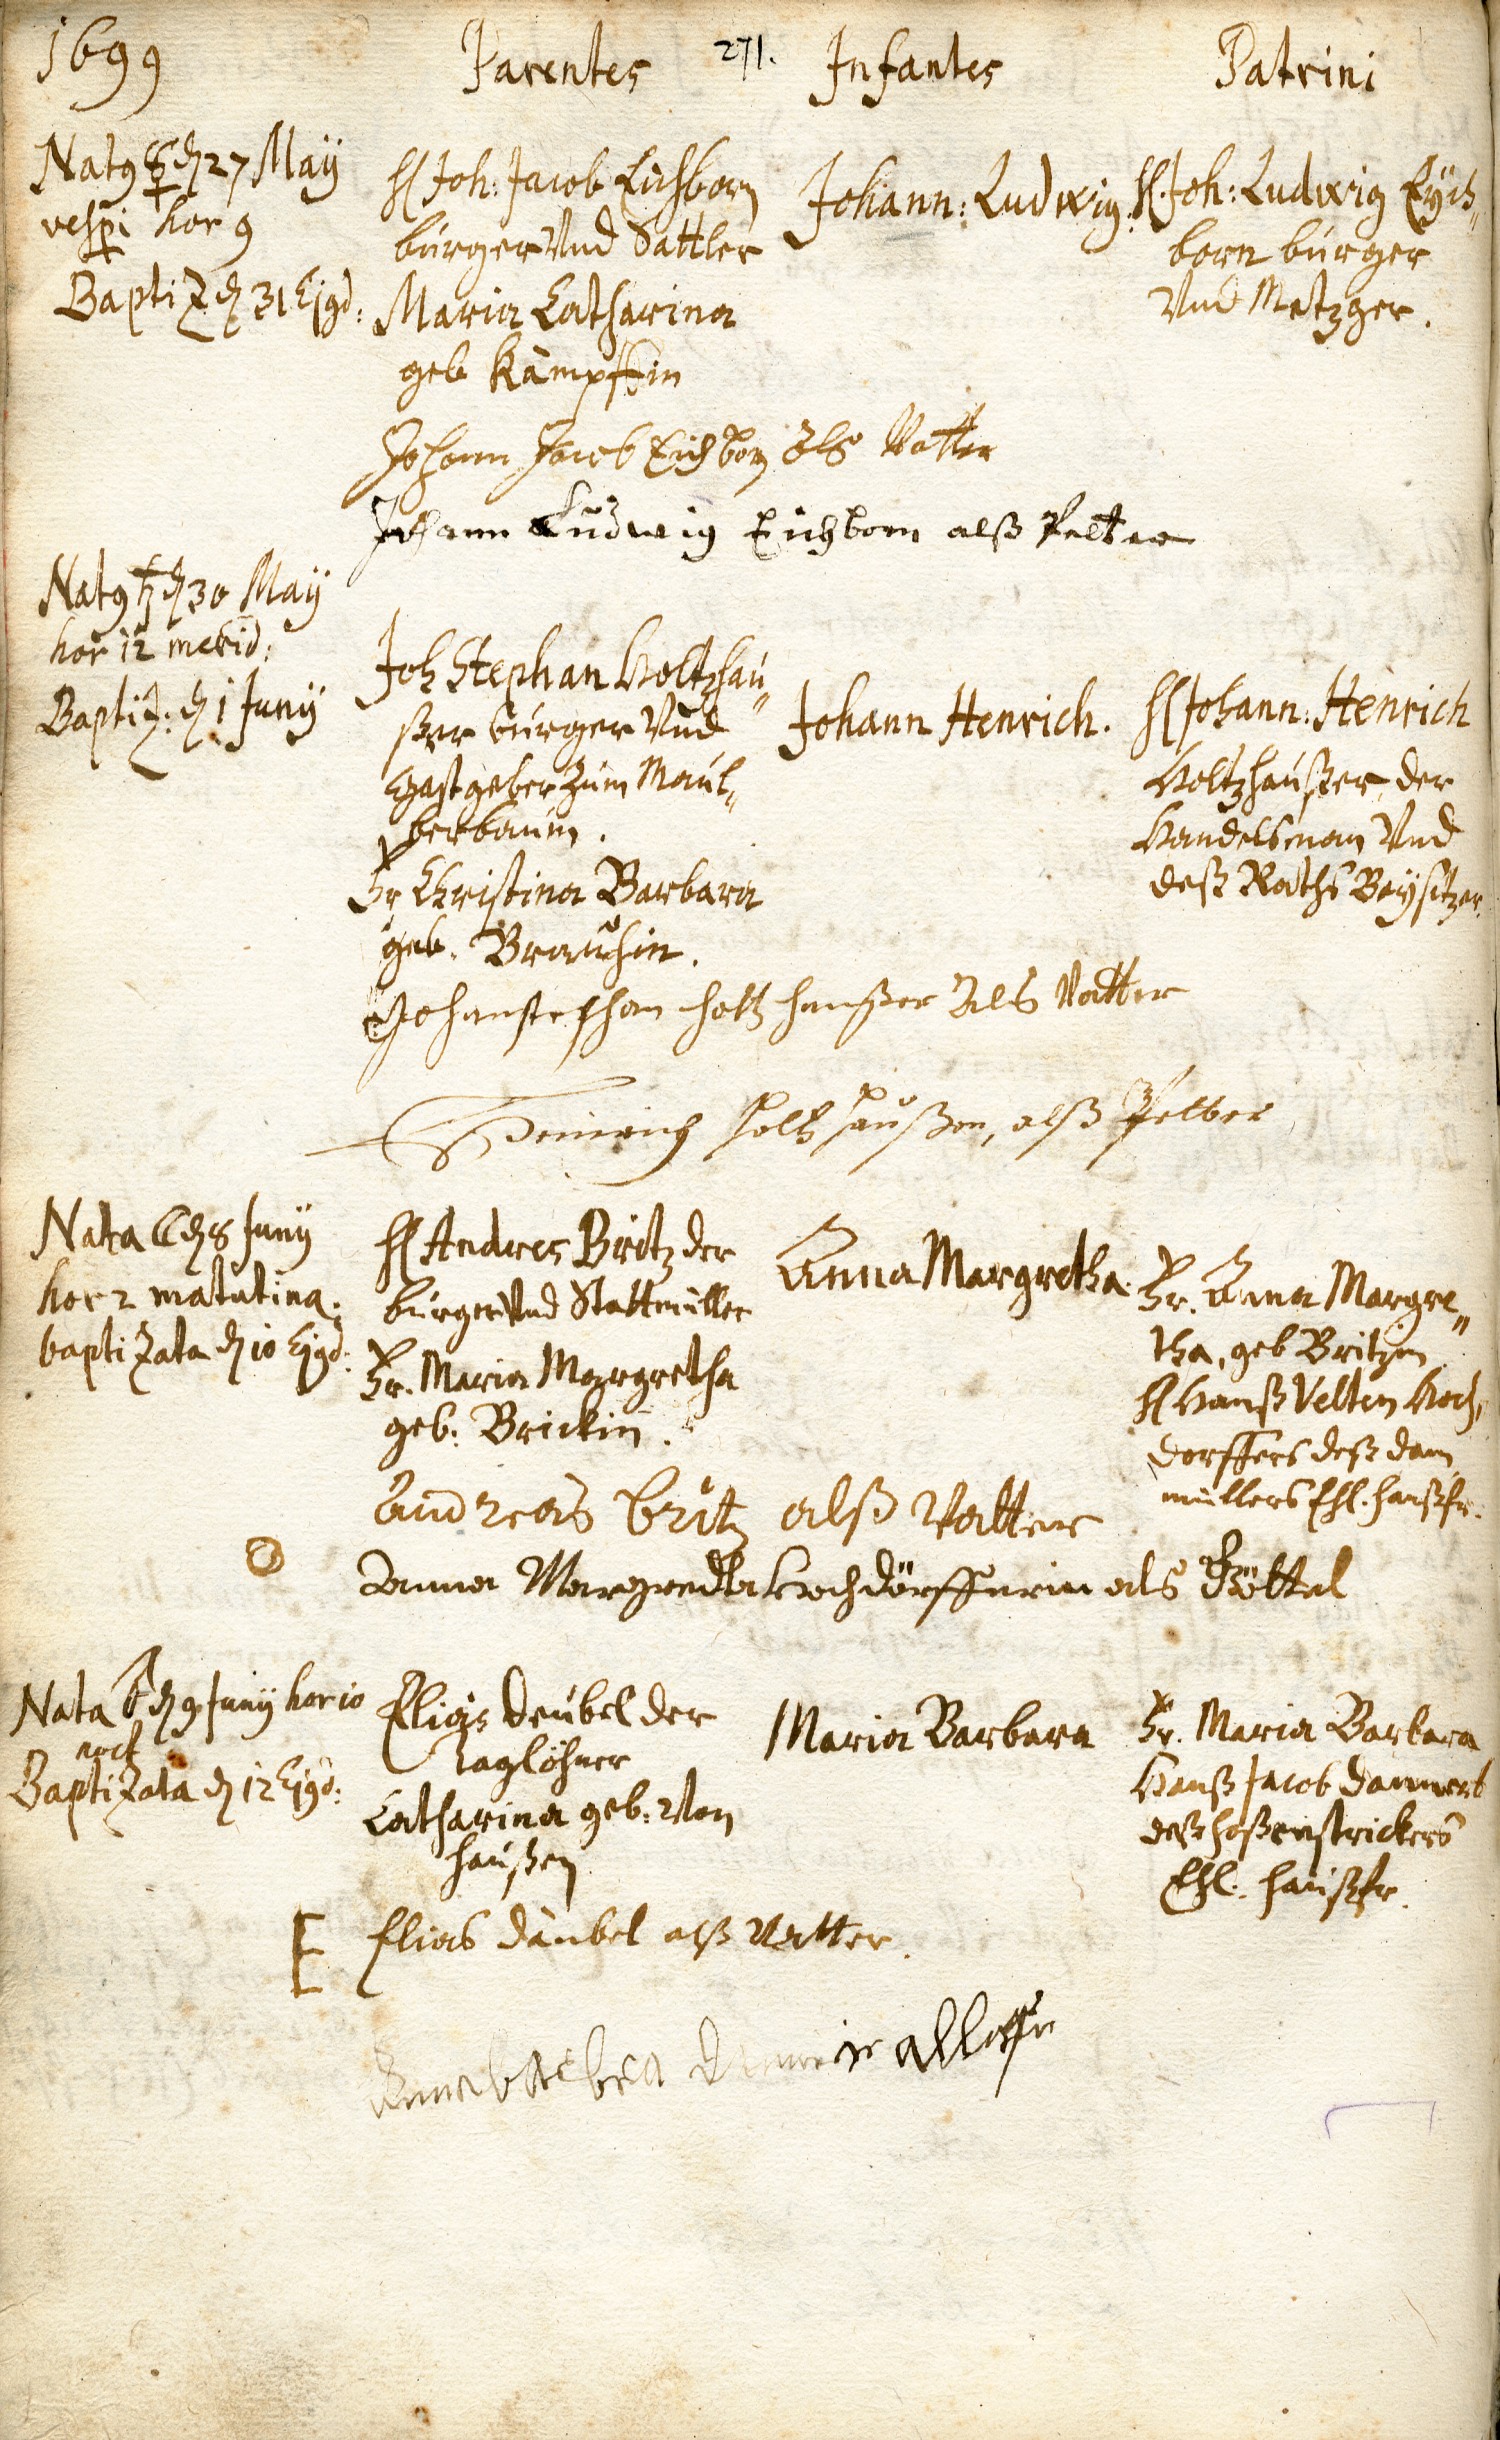 1699
Parentes
271.
Infantes
Patrini
Nat9 ☿ d 27 May
vesp̱i hor 9
Baptiz d 31 Ejqd:
H Joh: Jacob Eichborn
burger Vnd Sattler
Maria Catharina
geb Kämpffin
Johann: Ludwig.
H. Joh: Ludwig Eych„
born burger
Vnd Metzger.
Johann Jacob Eichborn Als Vatter
Johann Ludwig Eichborn alß Petter
Nat9 ♄ d 30 May
hor 12 merid:
Baptiz: d 1 Juny
Joh Stephan Holtzhau„
ßer burger Vnd
Gastgeber Zum Maul„
berbaum.
Fr Christina Barbara
geb. Brauhin.
Johann Henrich.
H Johann: Henrich
Holtzhaußer, der
Handelsman Vnd
deß Raths Beysitzer.
Johan stephan holtz haußer Als Vatter
Heinrich Holtzhaußen, alß Petter
Nata ☾ d 8 Juny
hor 2 matutina.
baptizata d 10 Ejqd:
H Andres Britz der
burger Vnd Stattmüller
Fr. Maria Margretha
geb: Brickin.
Anna Margretha.
Fr. Anna Margre„
tha, geb Britzin
H Hanß Velten Hoch„
dorffers deß dam
müllers Ehl. haußfr.
Andreas britz alß Vatter
Anna Margredta Hochdörfferin als Göttel
Nata ♂ d 9 Juny hor 10
noct
Baptizata d 12 Ejqd:
Elias Deubel der
taglöhner
Catharina geb: Von
haußen
Maria Barbara
Fr. Maria Barbara
Hanß Jacob Dammert
deß hoßenstrickers
Ehl. haußfr.
E Elias däubel alß Vatter.